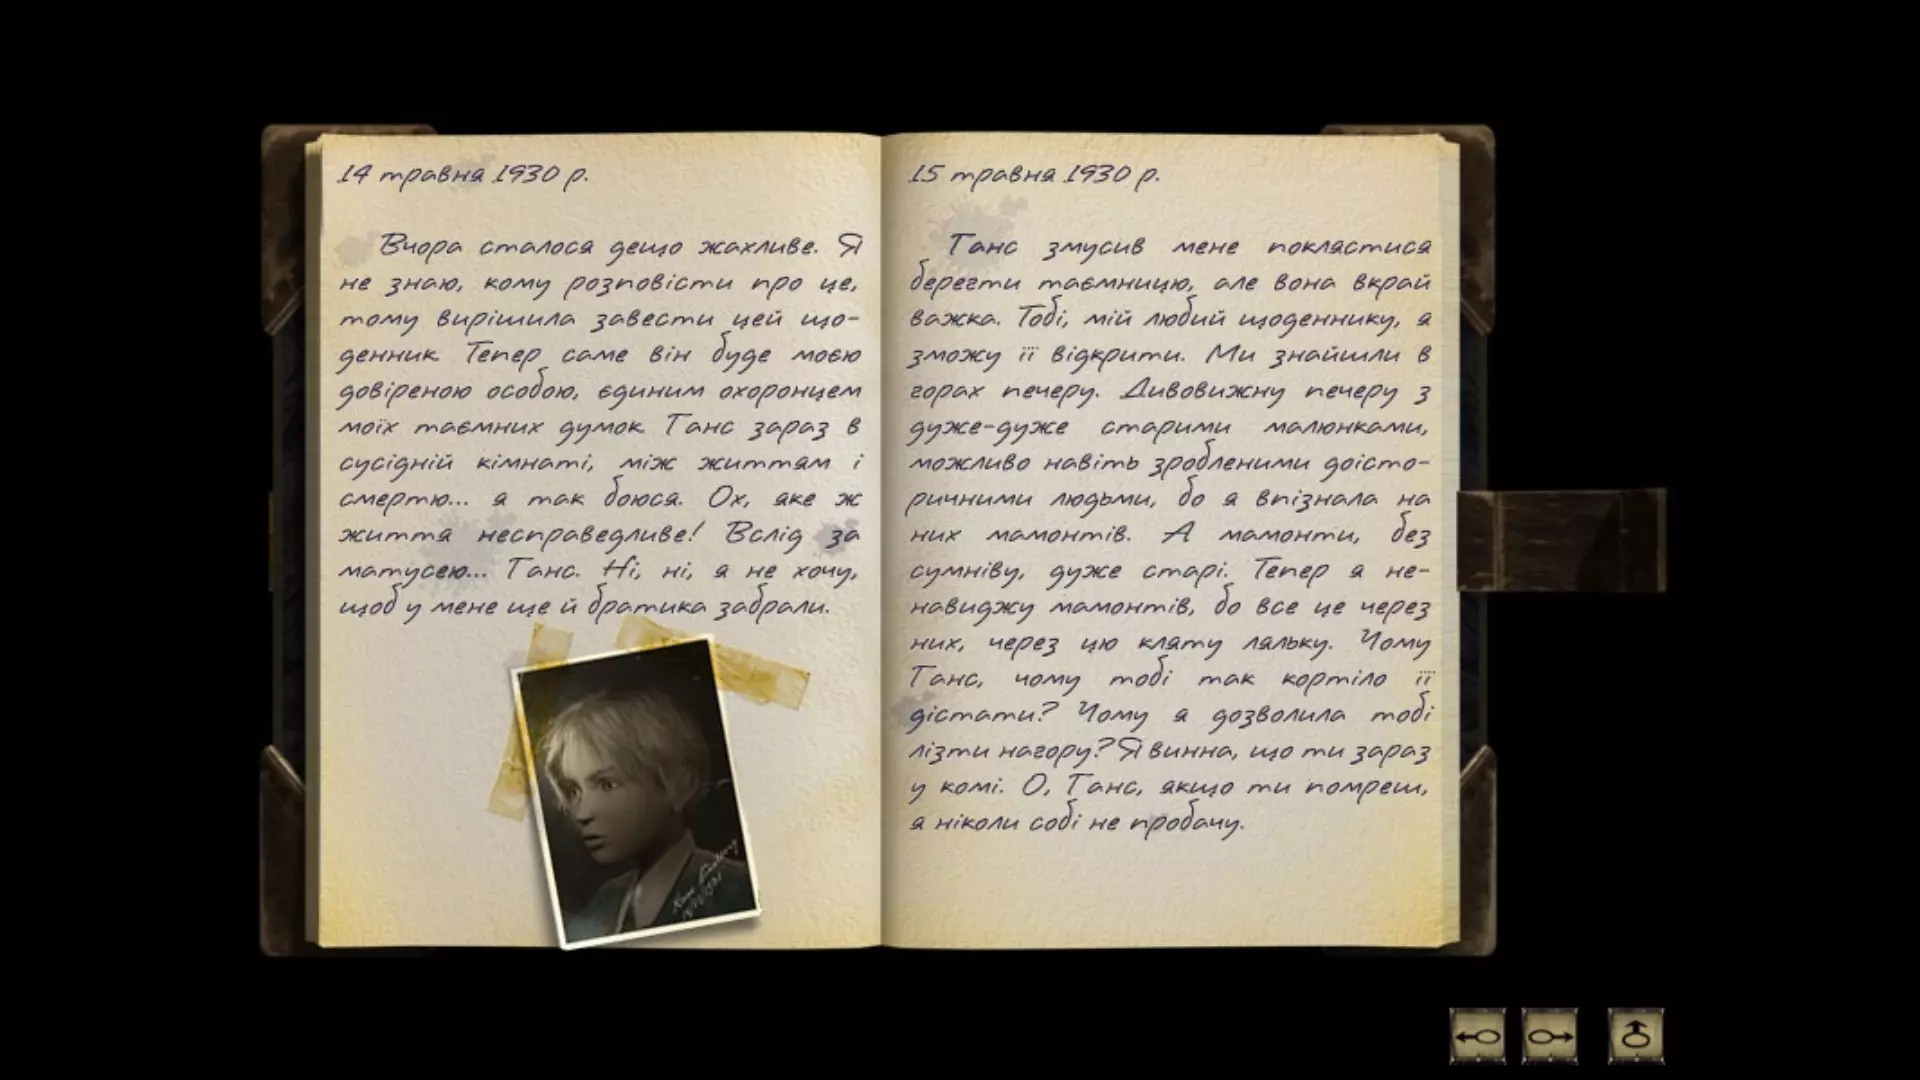 14 травня 1930 р.
Вчора сталося дещо жахливе. Я
не знаю, кому розповісти про це,
тому вирішила завести цей що-
денник. Тепер саме він буде моєю
довіреною особою, єдиним охоронцем
моїх таємних думок. Ганс зараз в
сусідній кімнаті, між життям і
смертю... я так боюся. Ох, яке ж
життя несправедливе! Вслід за
матусею... Ганс. Ні, ні, я не хочу,
щоб у мене ще й братика забрали.
15 травня 1930 р.
Ганс змусив мене поклястися
берегти таємницю, але вона вкрай
важка. Тобі, мій любий щоденнику, я
зможу її відкрити. Ми знайшли в
горах печеру. Дивовижну печеру з
дуже-дуже старими малюнками,
можливо навіть зробленими доісто-
ричними людьми, бо я впізнала на
них мамонтів. А мамонти, без
сумніву, дуже старі. Тепер я не-
навиджу мамонтів, бо все це через
них, через цю кляту ляльку. Чому
Ганс, чому тобі так кортіло її
дістати? Чому я дозволила тобі
лізти нагору? Я винна, що ти зараз
у комі. О, Ганс, якщо ти помреш,
я ніколи собі не пробачу.